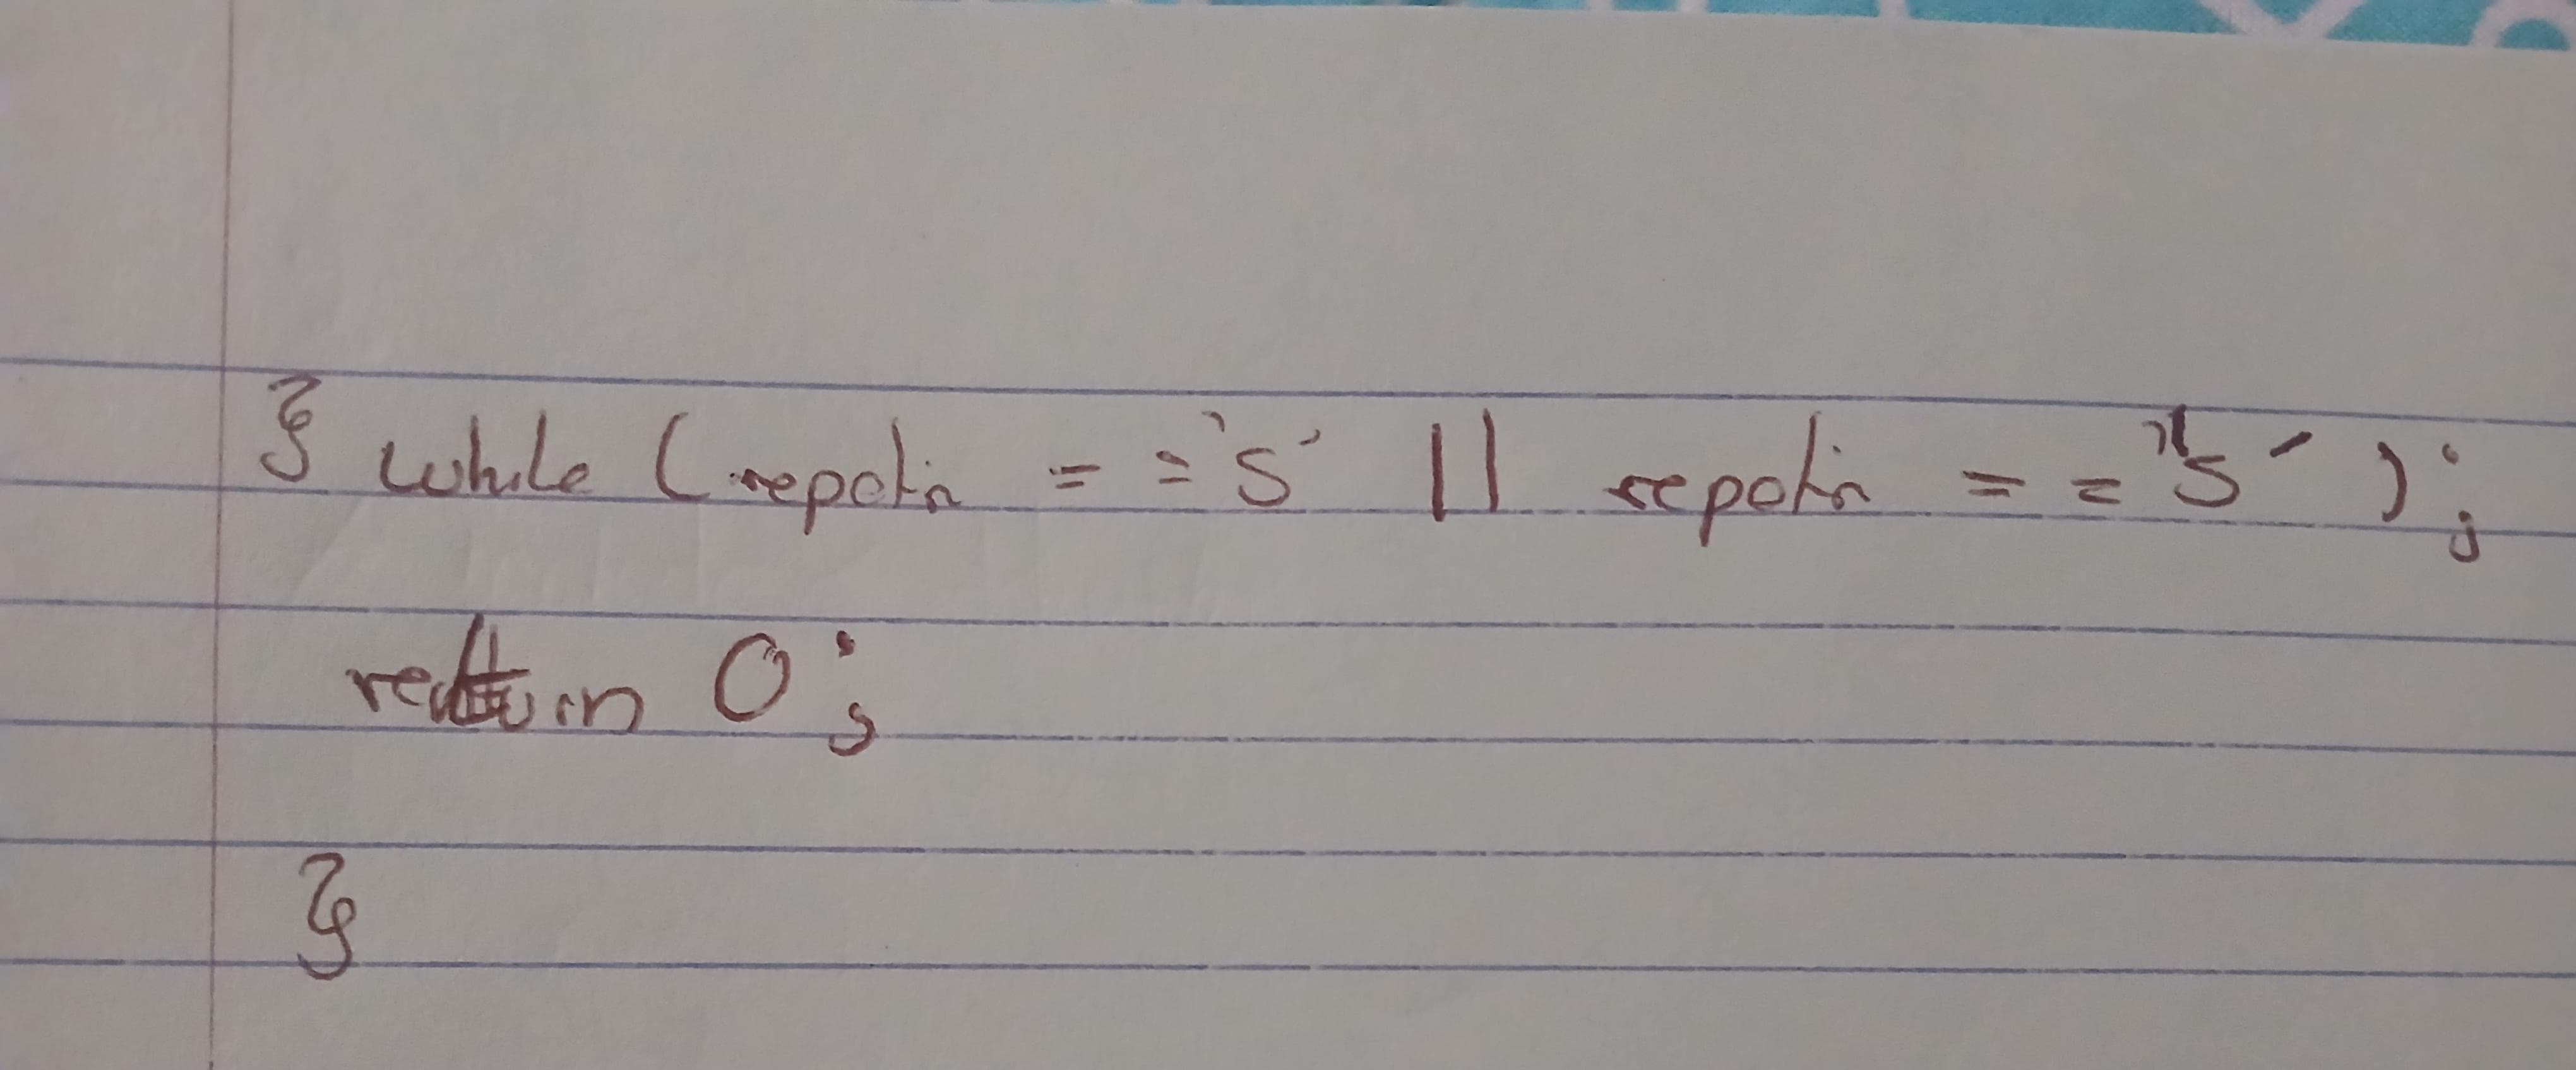 } while (repetir = = 's' || repetir = = 's' );
return 0;
}